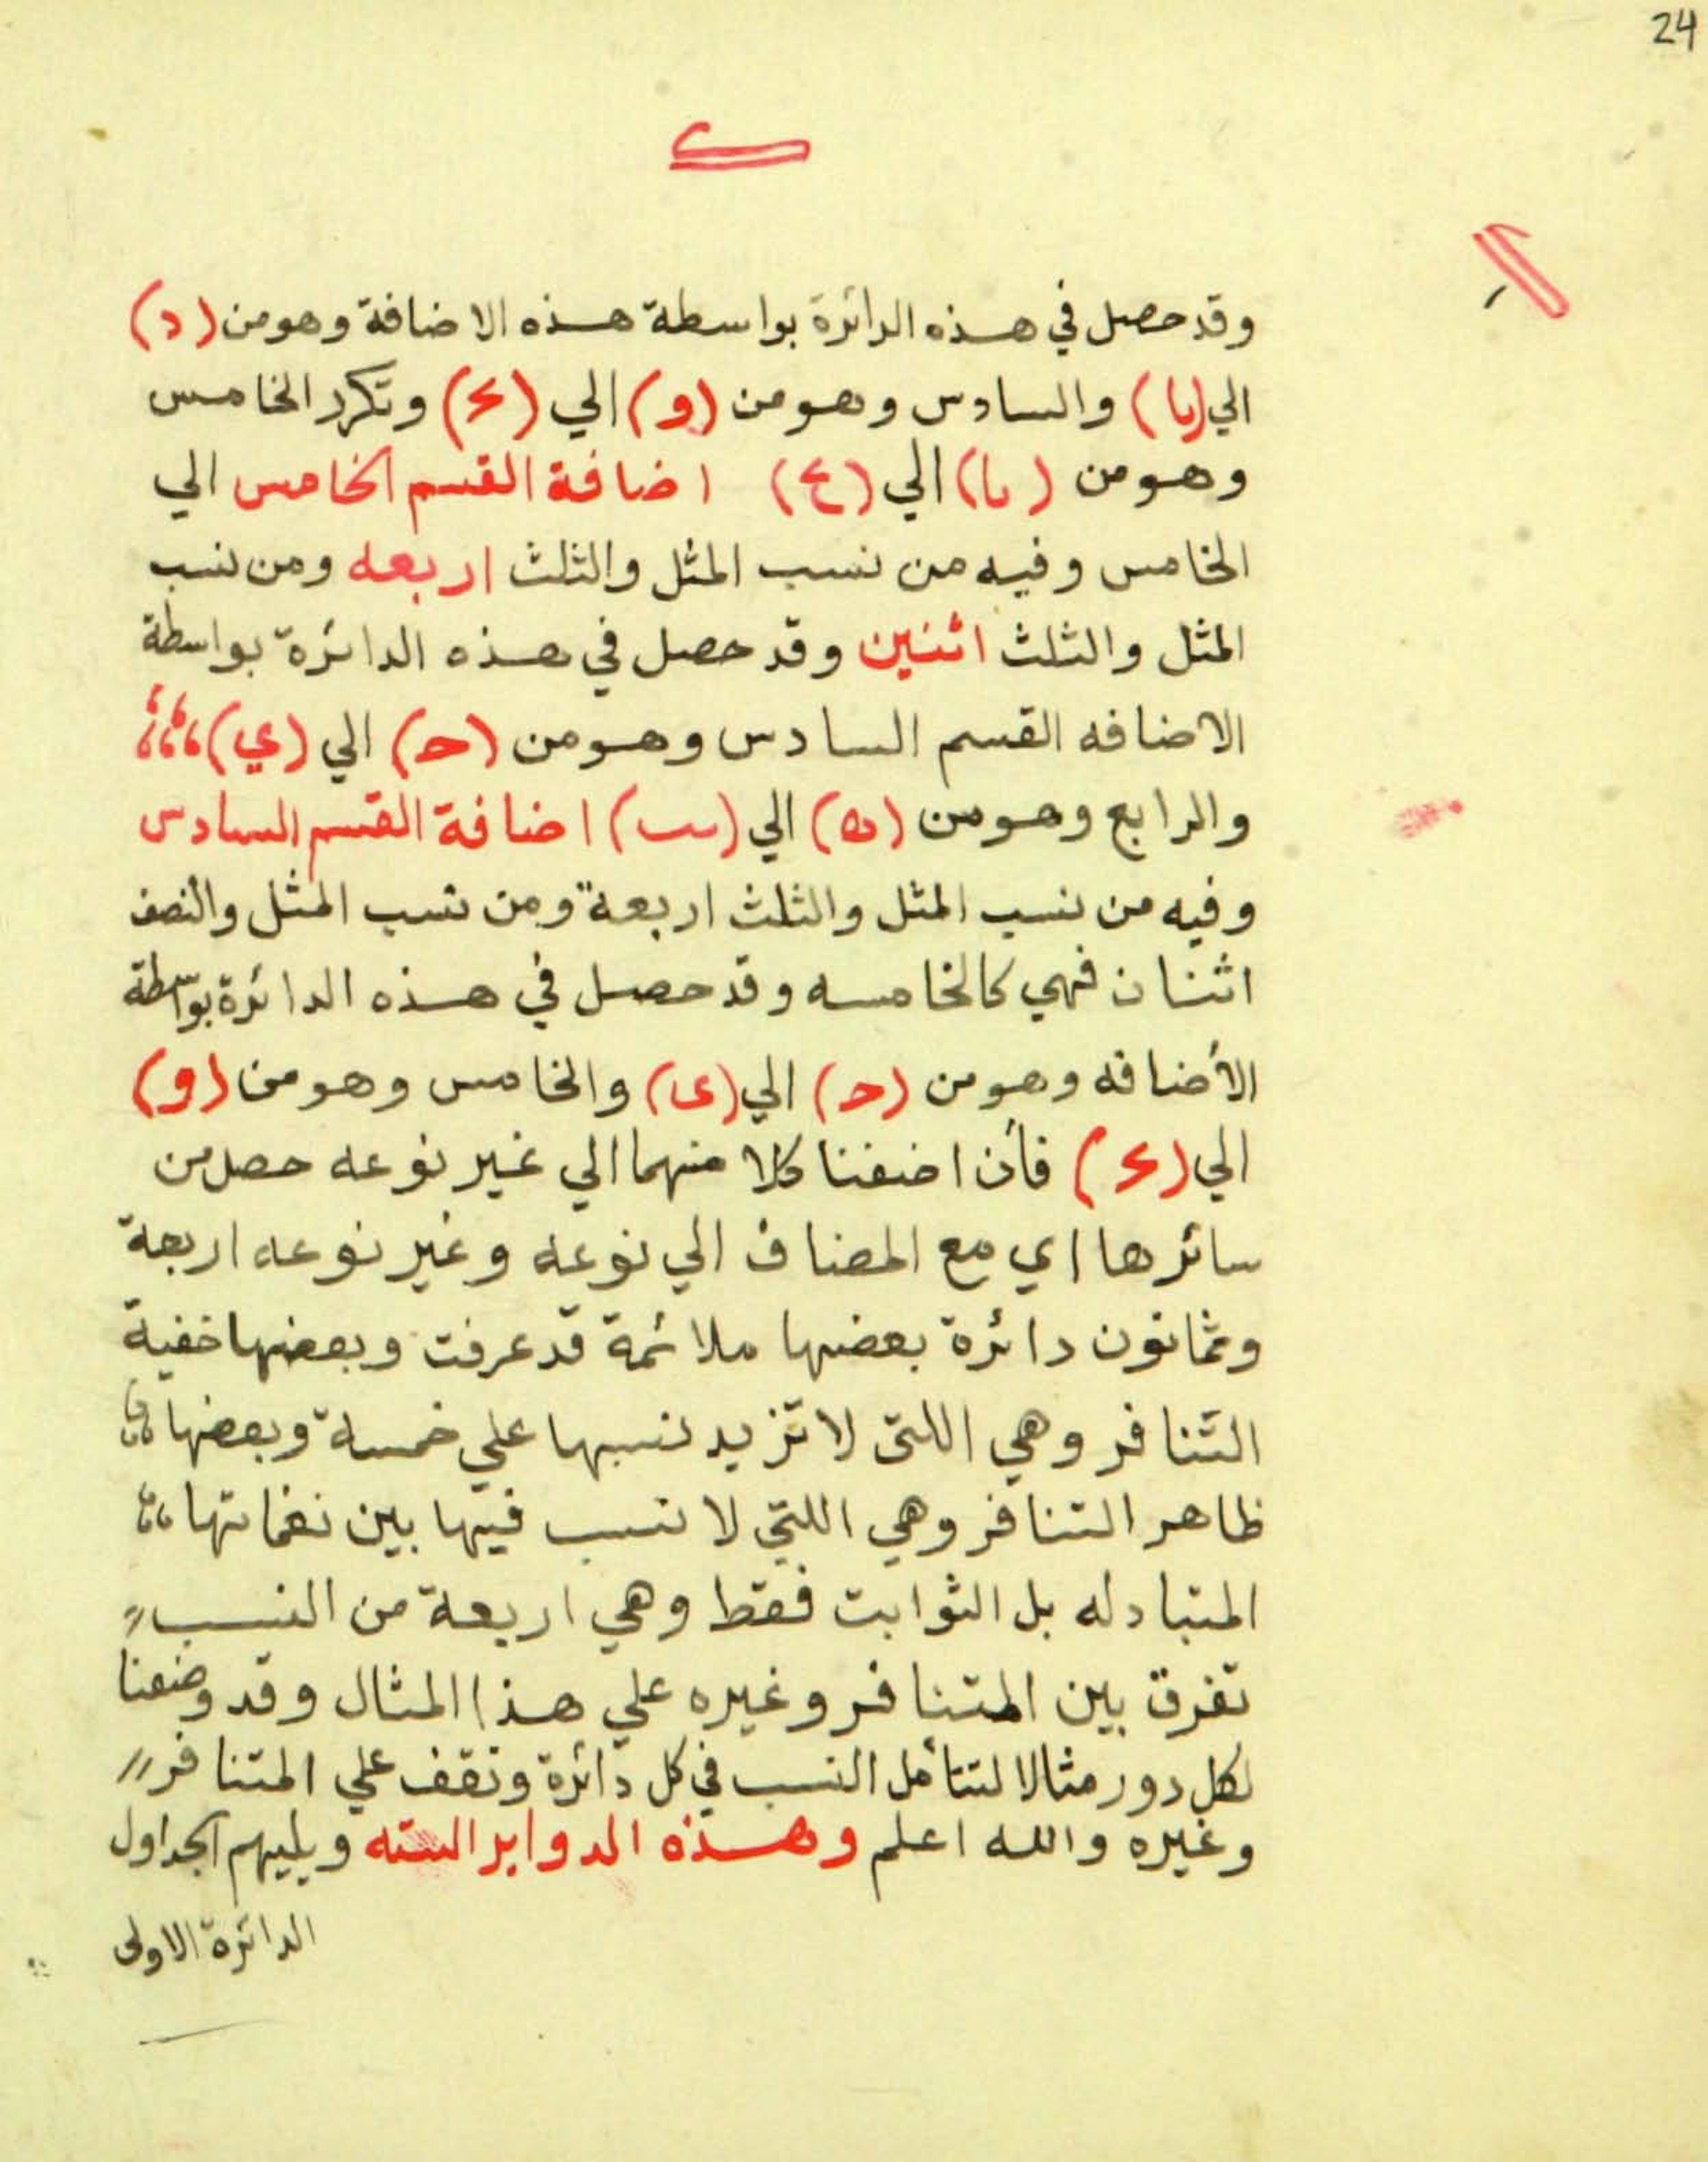 24
وقد حصل في هذه الدائرة بواسطة هذه الاضافة وهو من (د)
الي (يا) والسادس وهو من (و) الي (ع) وتكرر الخامس
وهو من (يا) الي (ع) اضافة القسم الخامس الي
الخامس وفيه من نسب المثل والثلث اربعه ومن نسب
المثل والثلث اثنين وقد حصل في هذه الدائرة بواسطة
الاضافه القسم السادس وهو من (ح) الي (ي)
والرابع وهو من (ه) الي (يب) اضافة القسم السادس
وفيه من نسب المثل والثلث اربعة ومن نسب المثل والنصف
اثنان فهي كالخامسه وقد حصل في هذه الدائرة بواسطة
الأضافه وهو من (ح) الي (ى) والخامس وهو من (و)
الي (ع) فأن اضفنا كلا منهما الي غير نوعه حصل من
سائرها اي مع المضاف الي نوعه وغير نوعه اربعة
وثمانون دائرة بعضها ملائمة قد عرفت وبعضها خفية
التنافر وهي اللتى لا تزيد نسبها علي خمسة وبعضها
ظاهر التنافر وهي اللتي لا نسب فيها بين نغماتها
المتبادله بل الثوابت فقط وهي اربعة من النسب
تفرق بين المتنافر وغيره علي هذا المثال وقد وضعنا
لكل دور مثالا لتتأمل النسب في كل دائرة وتقف علي المتنافر
وغيره والله اعلم وهذه الدواير السته ويليهم الجداول
الدائرة الاولى